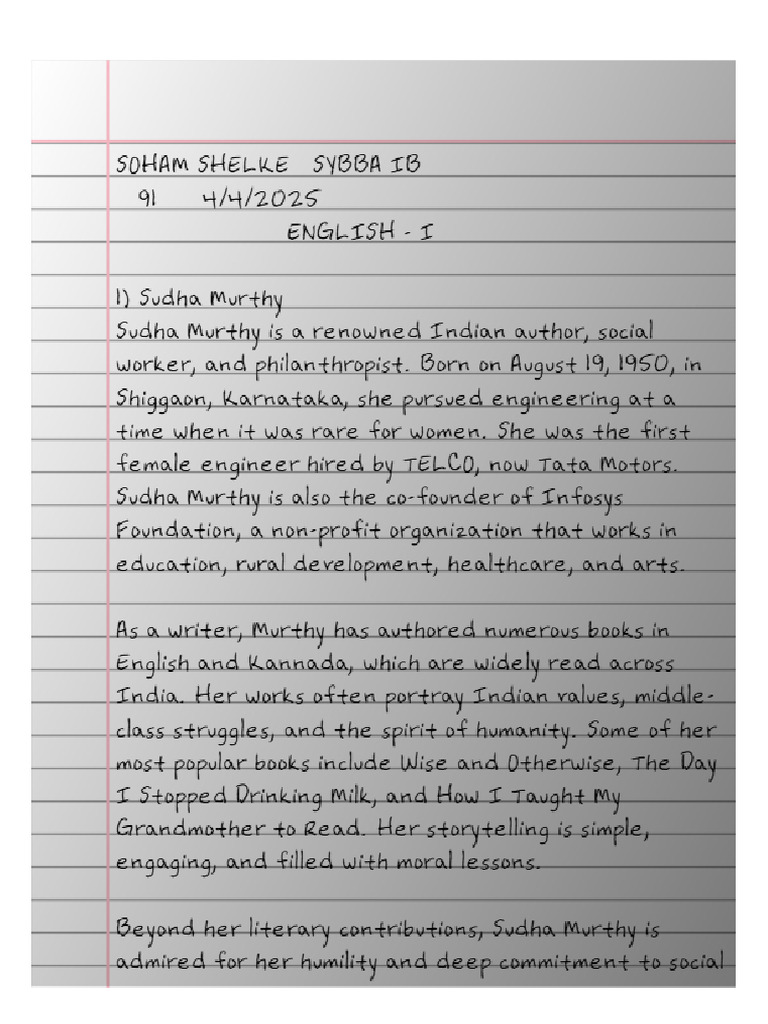 SOHAM SHELKE SYBBA IB
91 4/4/2025
ENGLISH - I
1) Sudha Murthy
Sudha Murthy is a renowned Indian author, social
worker, and philanthropist. Born on August 19, 1950, in
Shiggaon, Karnataka, she pursued engineering at a
time when it was rare for women. She was the first
female engineer hired by TELCO, now Tata Motors.
Sudha Murthy is also the co-founder of Infosys
Foundation, a non-profit organization that works in
education, rural development, healthcare, and arts.
As a writer, Murthy has authored numerous books in
English and Kannada, which are widely read across
India. Her works often portray Indian values, middle-
class struggles, and the spirit of humanity. Some of her
most popular books include Wise and Otherwise, The Day
I Stopped Drinking Milk, and How I Taught My
Grandmother to Read. Her storytelling is simple,
engaging, and filled with moral lessons.
Beyond her literary contributions, Sudha Murthy is
admired for her humility and deep commitment to social